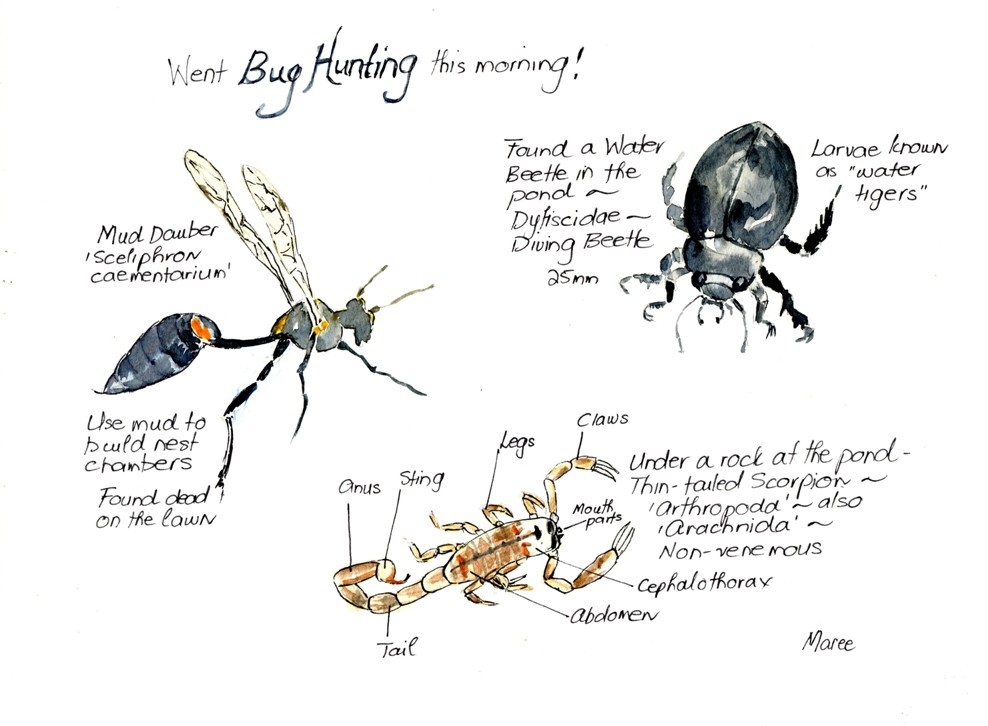 Went Bug Hunting this morning!
Mud Dauber
'Sceliphron
caementarium'
Use mud to
build nest
chambers
Found dead
on the lawn
Found a Water
Beetle in the
pond ~
Dytiscidae ~
Diving Beetle
25mm
Larvae known
as "water
tigers"
Claws
Legs
Sting
anus
Mouth
parts
Cephalothorax
Abdomen
Tail
Under a rock at the pond -
Thin-tailed Scorpion ~
'Arthropoda' ~ also
'Arachnida' ~
Non-venemous
Maree